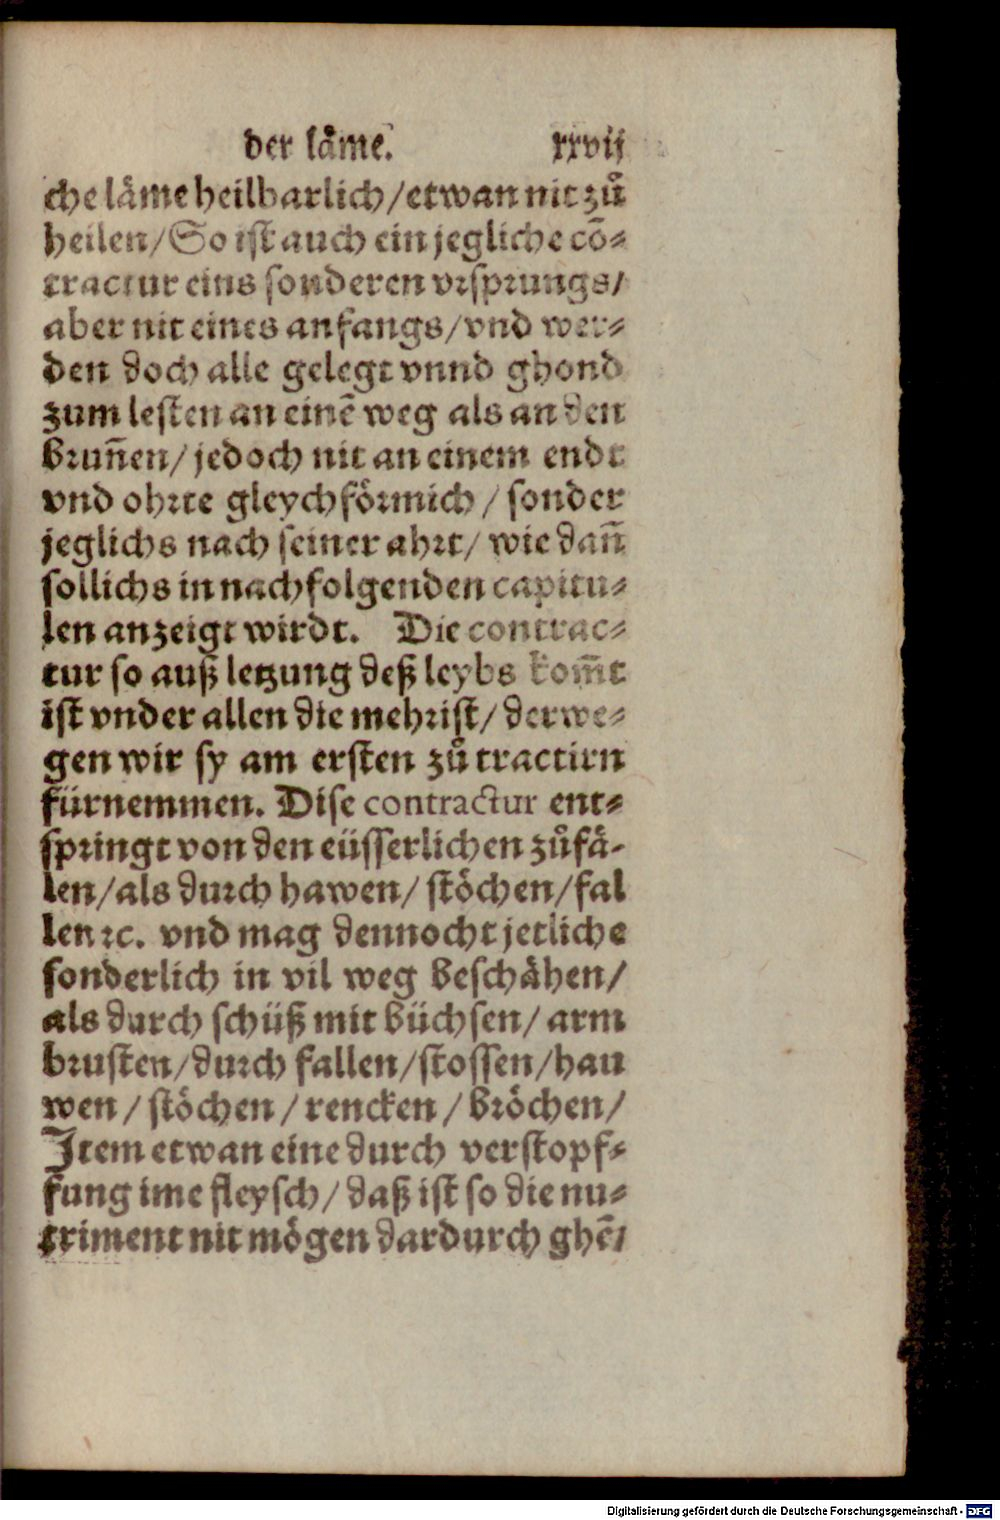 der läme. xxvij
che läme heilbarlich/etwan nit zů
heilen/So ist auch ein jegliche cõ-
tractur eins sonderen vrsprungs/
aber nit eines anfangs/vnd wer-
den doch alle gelegt vnnd ghond
zum lesten an einẽ weg als an den
brun̄en/jedoch nit an einem endt
vnd ohrte gleychförmich/sonder
jeglichs nach seiner ahrt/wie dan̄
sollichs in nachfolgenden capitu-
len anzeigt wirdt. Die contrac-
tur so auß letzung deß leybs kom̄t
ist vnder allen die mehrist/derwe-
gen wir sy am ersten zů tractirn
fürnemmen. Dise contractur ent-
springt von den eüsserlichen zůfä-
len/als durch hawen/stöchen/fal
len ꝛc. vnd mag dennocht jetliche
sonderlich in vil weg beschähen/
als durch schüß mit büchsen/arm
brusten/durch fallen/stossen/hau
wen/stöchen/rencken/bröchen/
Item etwan eine durch verstopf-
fung ime fleysch/daß ist so die nu-
triment nit mögen dardurch ghẽ/
Digitalisierung gefördert durch die Deutsche Forschungsgemeinschaft - DFG